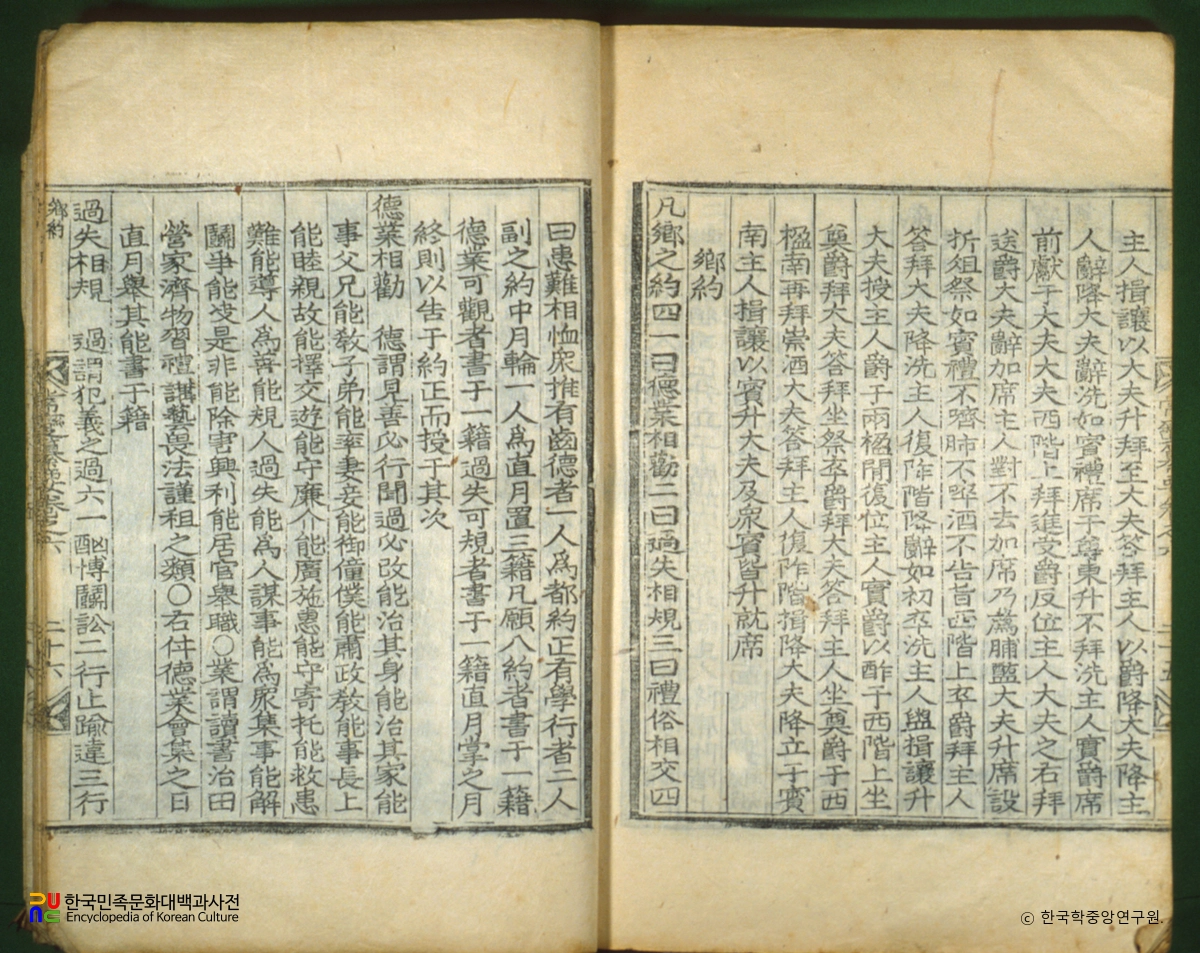 主人揖讓以大夫升拜至大夫答拜主人以爵降大夫降主
人辭降大夫辭洗如賓禮席于尊東升不拜洗主人實爵席
前獻于大夫大夫西階上拜進受爵反位主人大夫之右拜
送爵大夫辭加席主人對不去加席乃薦脯醢大夫升席設
折俎祭如賓禮不嚌肺不啐酒不告旨西階上卒爵拜主人
答拜大夫降洗主人復阼階降辭如初卒洗主人盥揖讓升
大夫授主人爵于兩楹閒復位主人實爵以酢于西階上坐
奠爵拜大夫答拜坐祭卒爵拜大夫答拜主人坐奠爵于西
楹南再拜崇酒大夫答拜主人復阼階揖降大夫降立于賓
南主人揖讓以賓升大夫及衆賓皆升就席
鄉約
凡鄉之約四一曰德業相勸二曰過失相規三曰禮俗相交四
曰患難相恤衆推有齒德者一人爲都約正有學行者二人
副之約中月輪一人爲直月置三籍凡願入約者書于一籍
德業可觀者書于一籍過失可規者書于一籍直月掌之月
終則以告于約正而授于其次
德業相勸 德謂見善必行聞過必改能治其身能治其家能
事父兄能敎子弟能率妻妾能御僮僕能肅政敎能事長上
能睦親故能擇交遊能守廉介能廣施惠能守寄托能救患
難能導人爲善能規人過失能爲人謀事能爲衆集事能解
鬪爭能决是非能除害興利能居官舉職○業謂讀書治田
營家濟物習禮講藝畏法謹租之類○右件德業會集之日
直月舉其能書于籍
過失相規 過謂犯義之過六一酗博鬪訟二行止踰違三行
鄉約
二十六
한국민족문화대백과사전
Encyclopedia of Korean Culture
© 한국학중앙연구원